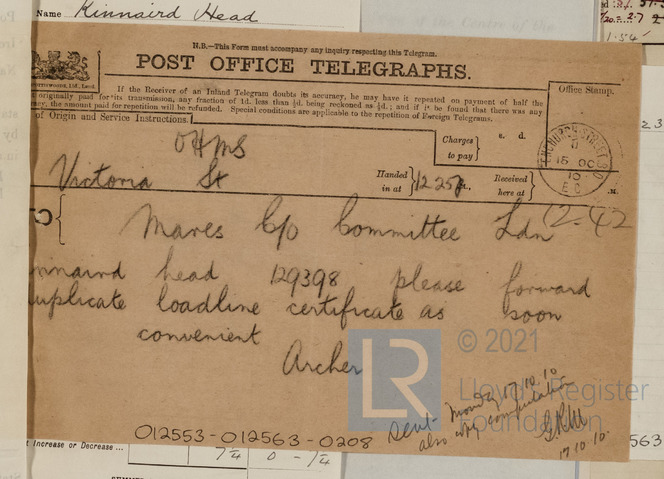 Name Kinnaird Head
N.B.—This Form must accompany any inquiry respecting this Telegram.
POST OFFICE TELEGRAPHS.
If the Receiver of an Inland Telegram doubts its accuracy, he may have it repeated on payment of half the
originally paid for its transmission, any fraction of 1d. less than ½d. being reckoned as ½d.; and if it be found that there was any
the amount paid for repetition will be refunded. Special conditions are applicable to the repetition of Foreign Telegrams.
of Origin and Service Instructions.
Office Stamp.
Charges to pay
s. d.
OHMS
Victoria St
Handed in at 12.25 p.
Received here at
M.
FENCHURCH STREET B.O
15 OC
10
E C
12.42
Mares C/o Committee Ldn
nnaird head 129398 please forward
uplicate loadline certificate as soon
convenient
Archer
LR
© 2021
Lloyd's Register
Foundation
sent Monday 17.10.10
also copy computation
17.10.10
012553-012563-0208
t Increase or Decrease ...
563